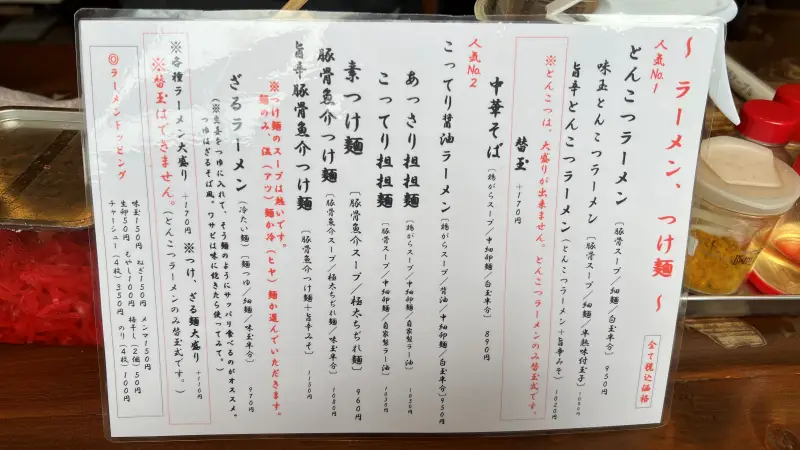 ～ ラーメン、つけ麺 ～
全て税込価格
人気No.1
とんこつラーメン〔豚骨スープ/細麺/白玉半分〕950円
味玉とんこつラーメン〔豚骨スープ/細麺/半熟味付玉子〕1080円
旨辛とんこつラーメン(とんこつラーメン+旨辛みそ)1020円
※とんこつは、大盛りが出来ません。とんこつラーメンのみ替玉式です。
替玉 +170円
人気No.2
中華そば〔鶏がらスープ/中細卵麺/白玉半分〕890円
こってり醤油ラーメン〔鶏がらスープ/醤油/中細卵麺/白玉半分〕950円
あっさり担担麺〔鶏がらスープ/中細卵麺/自家製ラー油〕1050円
こってり担担麺〔豚骨スープ/中細卵麺/自家製ラー油〕1050円
素つけ麺〔豚骨魚介スープ/極太ちぢれ麺〕960円
豚骨魚介つけ麺〔豚骨魚介スープ/極太ちぢれ麺/味玉半分〕1080円
旨辛豚骨魚介つけ麺〔豚骨魚介つけ麺+旨辛みそ〕1150円
※つけ麺のスープは熱いです。
麺のみ、温(アツ)麺か冷(ヒヤ)麺か選んでいただきます。
ざるラーメン(冷たい麺)〔麺つゆ/細麺/味玉半分〕970円
(※生姜をつゆに入れて、そう麺のようにサッパリ食べるのがオススメ。
つゆはざるそば風。ワサビは味に飽きたら使ってみて。)
※各種ラーメン大盛り +170円 ※つけ、ざる麺大盛り +110円
※替玉はできません。(とんこつラーメンのみ替玉式です。)
◎ラーメントッピング
味玉150円 ねぎ150円 メンマ150円
生卵50円 もやし100円 梅干し(2個)50円
チャーシュー(4枚)350円 のり(4枚)100円